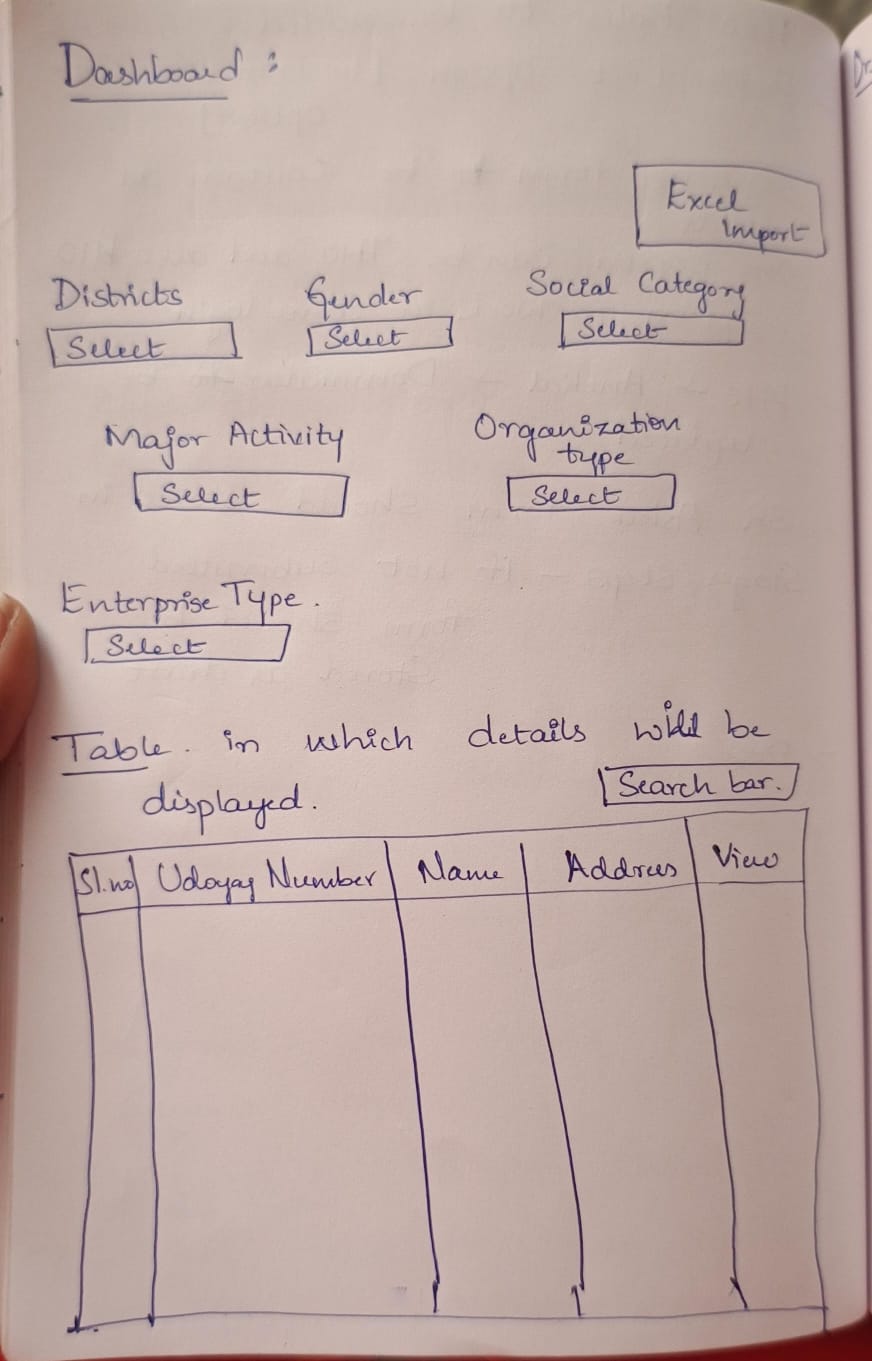 Dashboard :
Excel
Import
Districts Gender Social Category
Select Select Select
Major Activity Organization
type
Select Select
Enterprise Type.
Select
Table. in which details will be
displayed. Search bar.
Sl.no Udoyag Number Name Address View